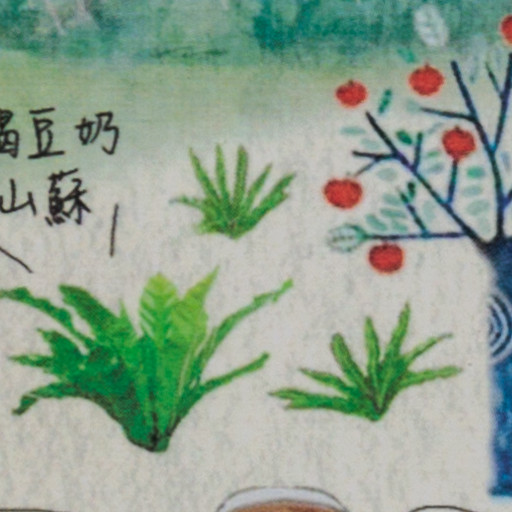 喝豆奶
山蘇